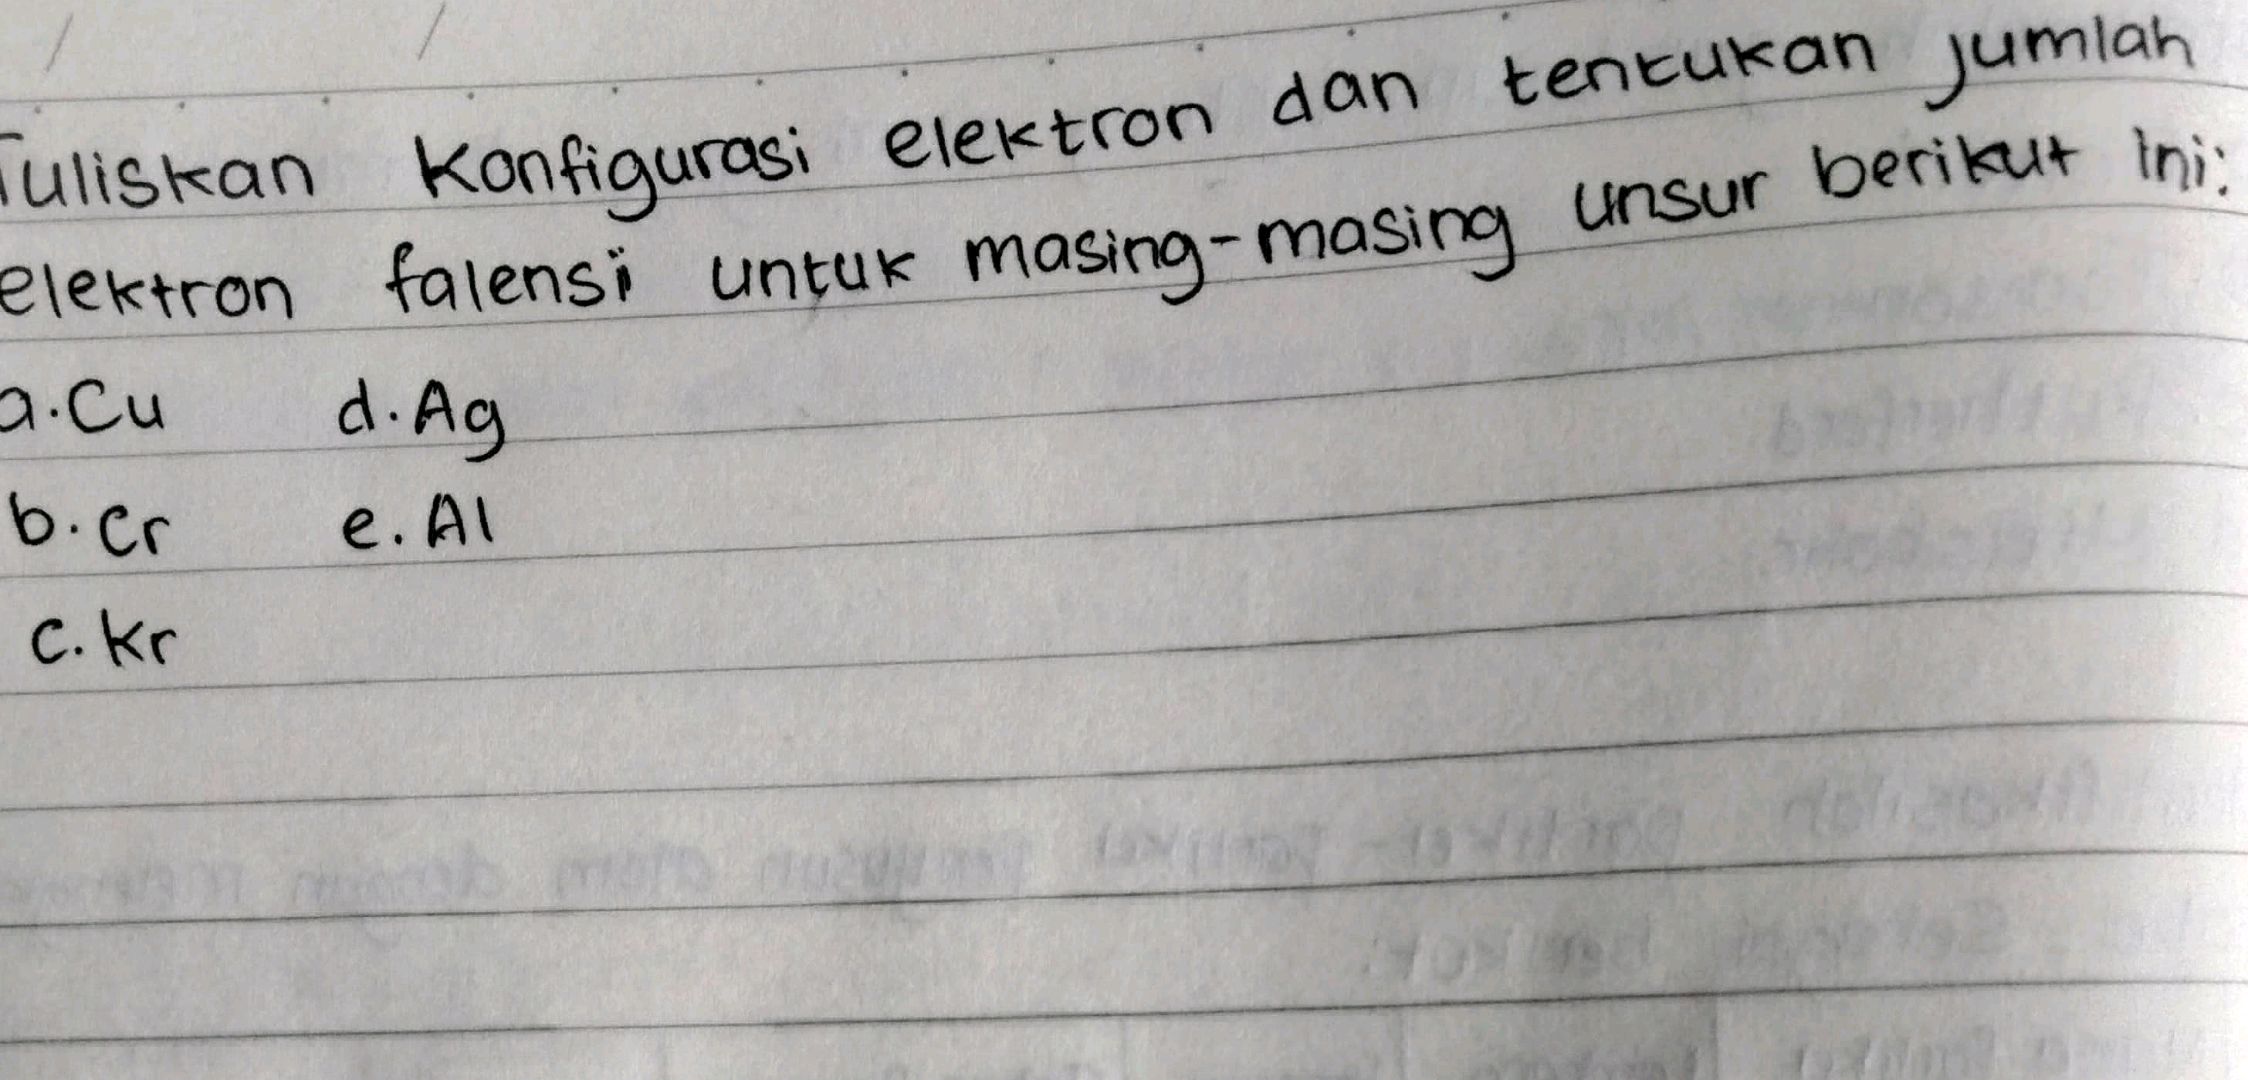 Tuliskan Konfigurasi elektron dan tentukan jumlah
elektron falensi untuk masing-masing unsur berikut ini:
a. Cu d. Ag
b. Cr e. Al
c. Kr